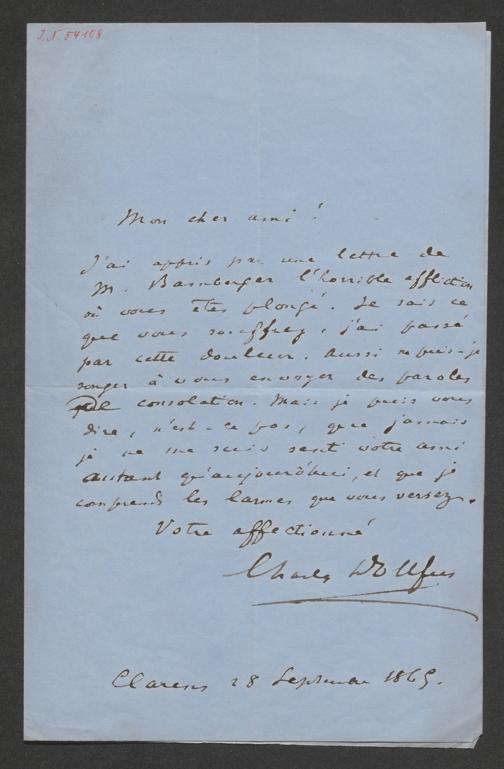 J.N. 54108
Mon cher ami !
J'ai appris par une lettre de
M. Bamberger l'horrible affliction
où vous êtes plongé. Je sais ce
que vous souffrez, j'ai passé
par cette douleur. Aussi ne puis-je
songer à vous envoyer des paroles
de consolation. Mais je puis vous
dire, n'est-ce pas, que jamais
je ne me suis senti votre ami
autant qu'aujourd'hui, et que je
comprends les larmes que vous versez.
Votre affectionné
Charles Dollfus
Clarens 28 Septembre 1865.